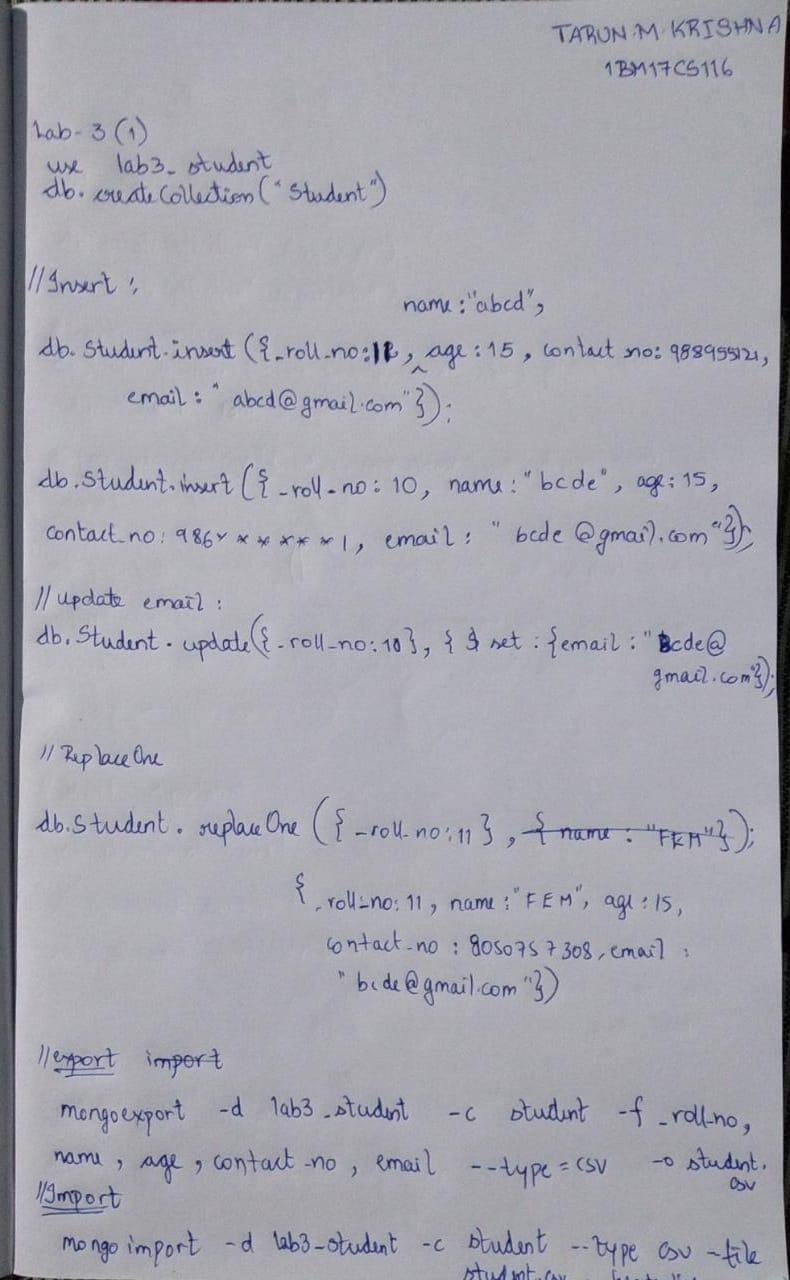 TARUN.M.KRISHNA
1BM17CS116
Lab-3(1)
use lab3_student
db.createCollection("Student")
//Insert :
name:"abcd",
db.Student.insert({_roll_no:11, age:15, contact no: 988955121,
email:"abcd@gmail.com"});
db.Student.insert({_roll_no: 10, name:"bcde", age:15,
contact_no: 986******1, email: "bcde@gmail.com"});
//update email:
db.Student.update({_roll_no:10}, {$set:{email:"bcde@
gmail.com"});
//ReplaceOne
db.Student.replaceOne({_roll_no:11}, {name:"FEM"});
{_roll_no: 11, name:"FEM", age:15,
contact_no: 8050757308, email:
"bcde@gmail.com"})
//export import
mongoexport -d lab3_student -c student -f _roll_no,
name, age, contact_no, email --type=csv -o student.
csv
//Import
mongoimport -d lab3_student -c student --type csv -file
student.csv